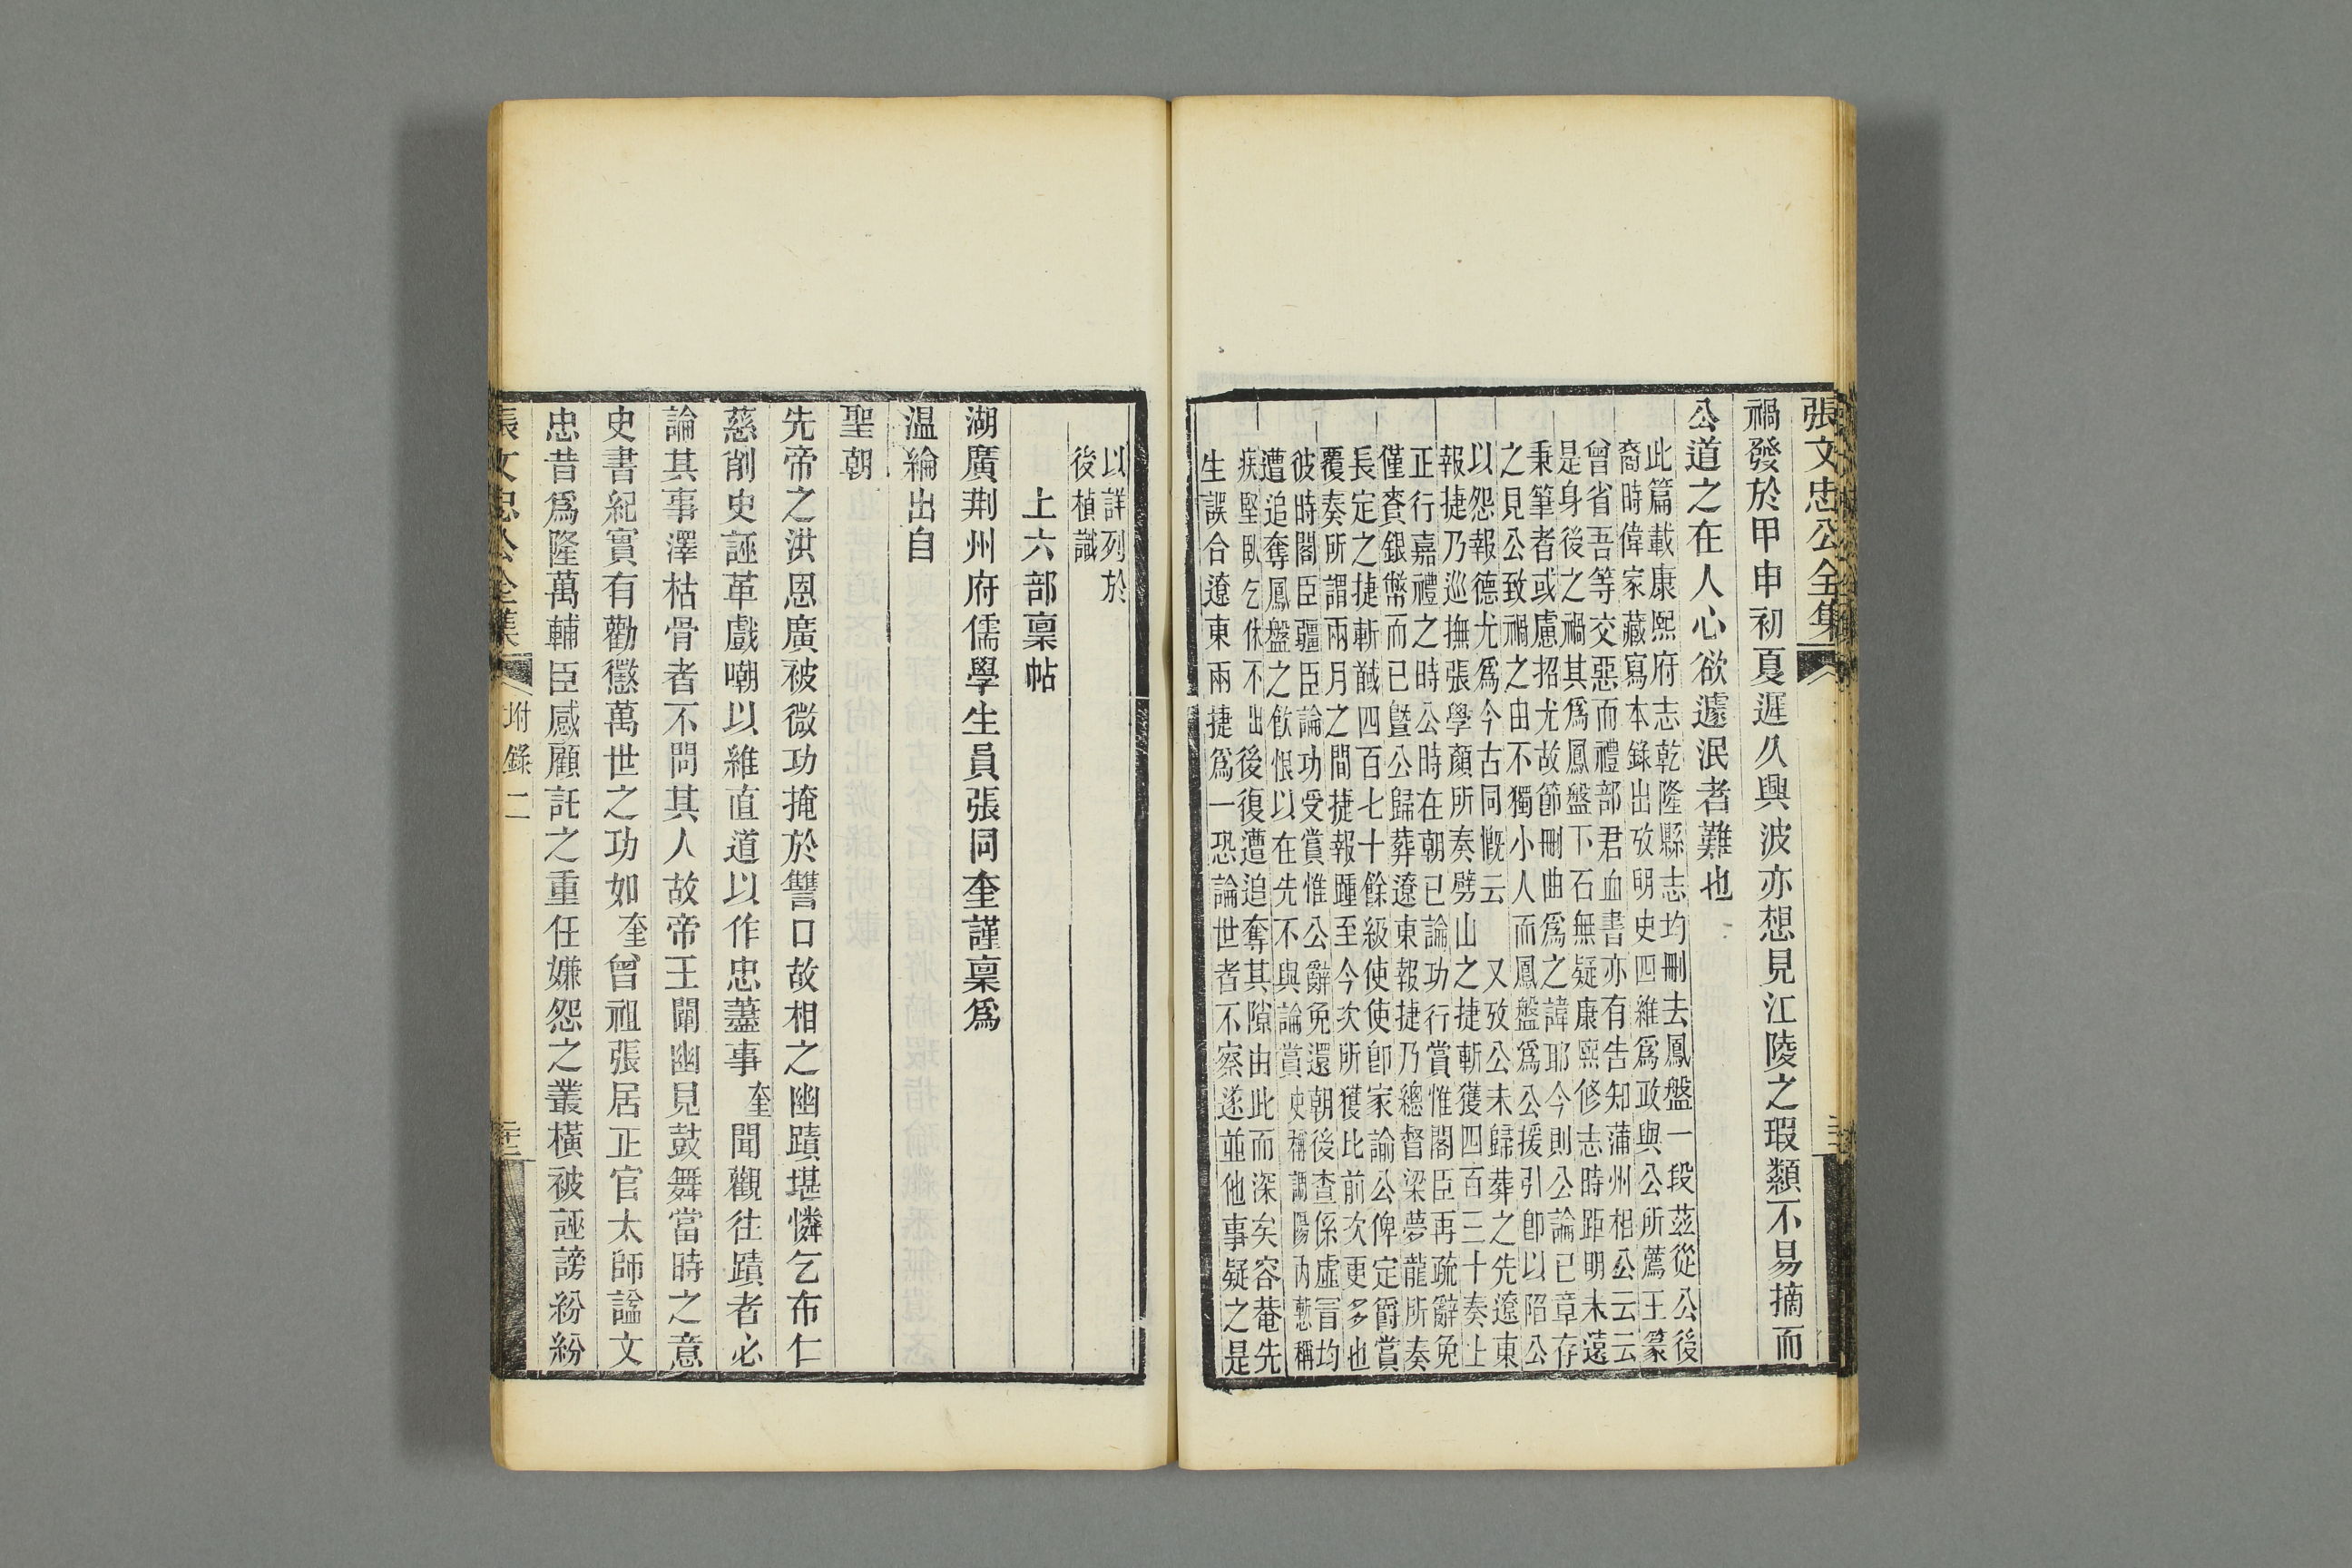 張文忠公全集
禍發於甲申初夏遲久興波亦想見江陵之瑕纇不易摘而
公道之在人心欲遽泯者難也
此篇載康熙府志乾隆縣志均刪去鳳盤一段茲從公後
裔時偉家藏寫本錄出攷明史四維爲政與公所薦王篆
曾省吾等交惡而禮部君血書亦有告知蒲州相公云云
是身後之禍其爲鳳盤下石無疑康熙修志時距明未遠
秉筆者或慮招尤故節刪曲爲之諱耶今則公論已章存
之見公致禍之由不獨小人而鳳盤爲公援引卽以陷公
以怨報德尤爲今古同慨云　又攷公未歸葬之先遼東
報捷乃巡撫張學顏所奏劈山之捷斬獲四百三十奏上
正行嘉禮之時公時在朝已論功行賞惟閣臣再疏辭免
僅賚銀幣而已曁公歸葬遼東報捷乃總督梁夢龍所奏
長定之捷斬馘四百七十餘級使使卽家諭公俾定爵賞
覆奏所謂兩月之間捷報踵至今次所獲比前次更多也
彼時閣臣疆臣論功受賞惟公辭免還朝後查係虛冒均
遭追奪鳳盤之飮恨以在先不與論賞史稱調陽內慙稱
疾堅臥乞休不出後復遭追奪其隙由此而深矣容菴先
生誤合遼東兩捷爲一恐論世者不察遂並他事疑之是
以詳列於
後楨識
上六部稟帖
湖廣荆州府儒學生員張同奎謹稟爲
温綸出自
聖朝
先帝之洪恩廣被微功掩於讐口故相之幽蹟堪憐乞布仁
慈削史誣革戲嘲以維直道以作忠藎事奎聞觀往蹟者必
論其事澤枯骨者不問其人故帝王闡幽見鼓舞當時之意
史書紀實有勸懲萬世之功如奎曾祖張居正官太師謚文
忠昔爲隆萬輔臣感顧託之重任嫌怨之叢橫被誣謗紛紛
張文忠公全集　坿錄二